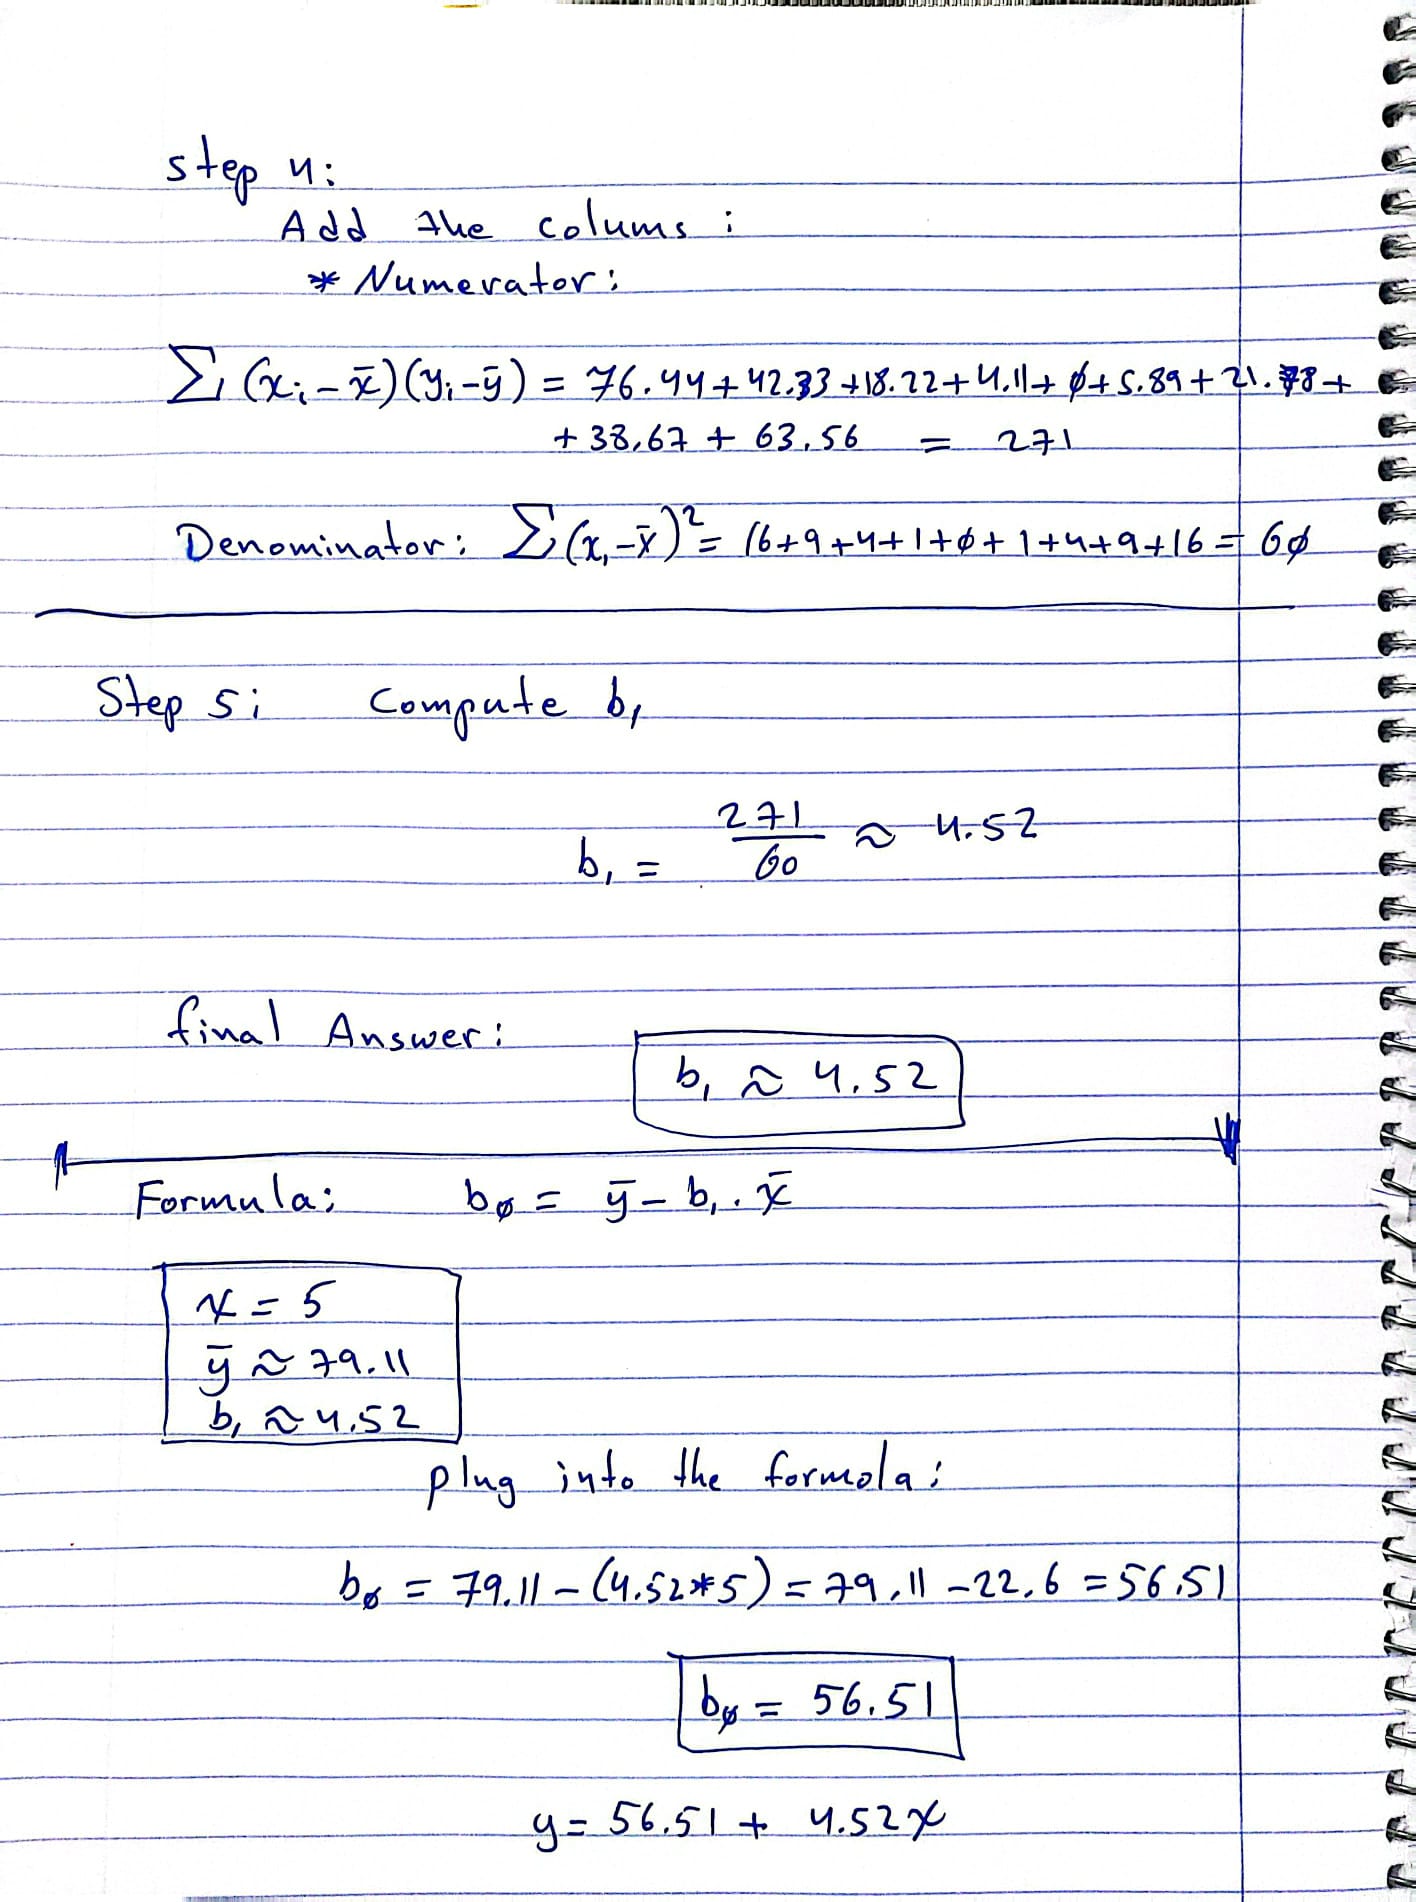 step 4:
Add the colums :
* Numerator:
∑ (xᵢ - x̄)(yᵢ - ȳ) = 76.44 + 42.33 + 18.22 + 4.11 + ∅ + 5.89 + 21.78 +
+ 38,67 + 63,56 = 271
Denominator: ∑(xᵢ - x̄)² = 16+9+4+1+∅+1+4+9+16 = 6∅
Step 5: Compute b₁
b₁ = 271/60 ≈ 4.52
final Answer:
b₁ ≈ 4.52
Formula: b∅ = ȳ - b₁ . x̄
x = 5
ȳ ≈ 79.11
b₁ ≈ 4.52
plug into the formola:
b∅ = 79.11 - (4.52*5) = 79,11 - 22,6 = 56,51
b∅ = 56.51
y = 56.51 + 4.52x